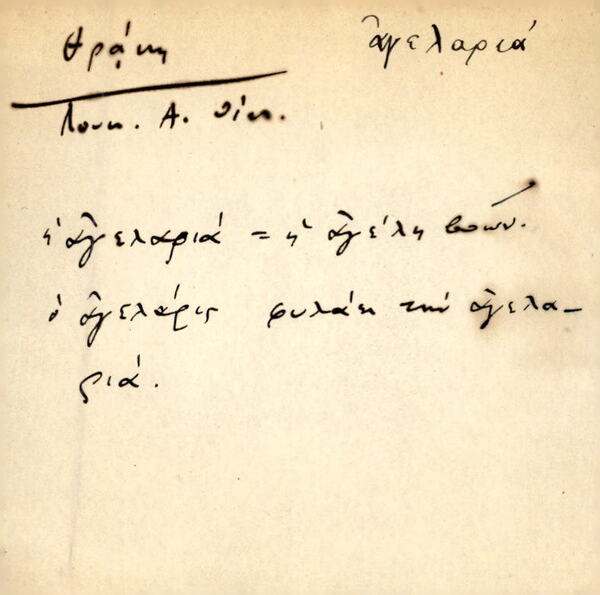 Θράκη
ἀγελαριά
Λουκ. Α. Οἰκ.
ἡ ἀγελαριά = ἡ ἀγέλη βοῶν.
ὁ ἀγελάρις φυλάει τὴν ἀγελα-
ριά.